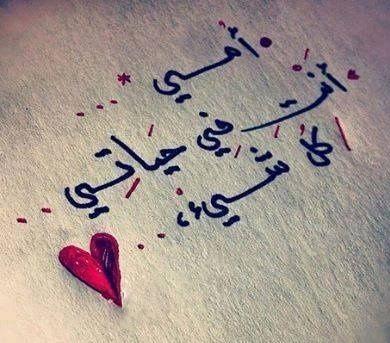 أمي
كل شيء
في حياتي